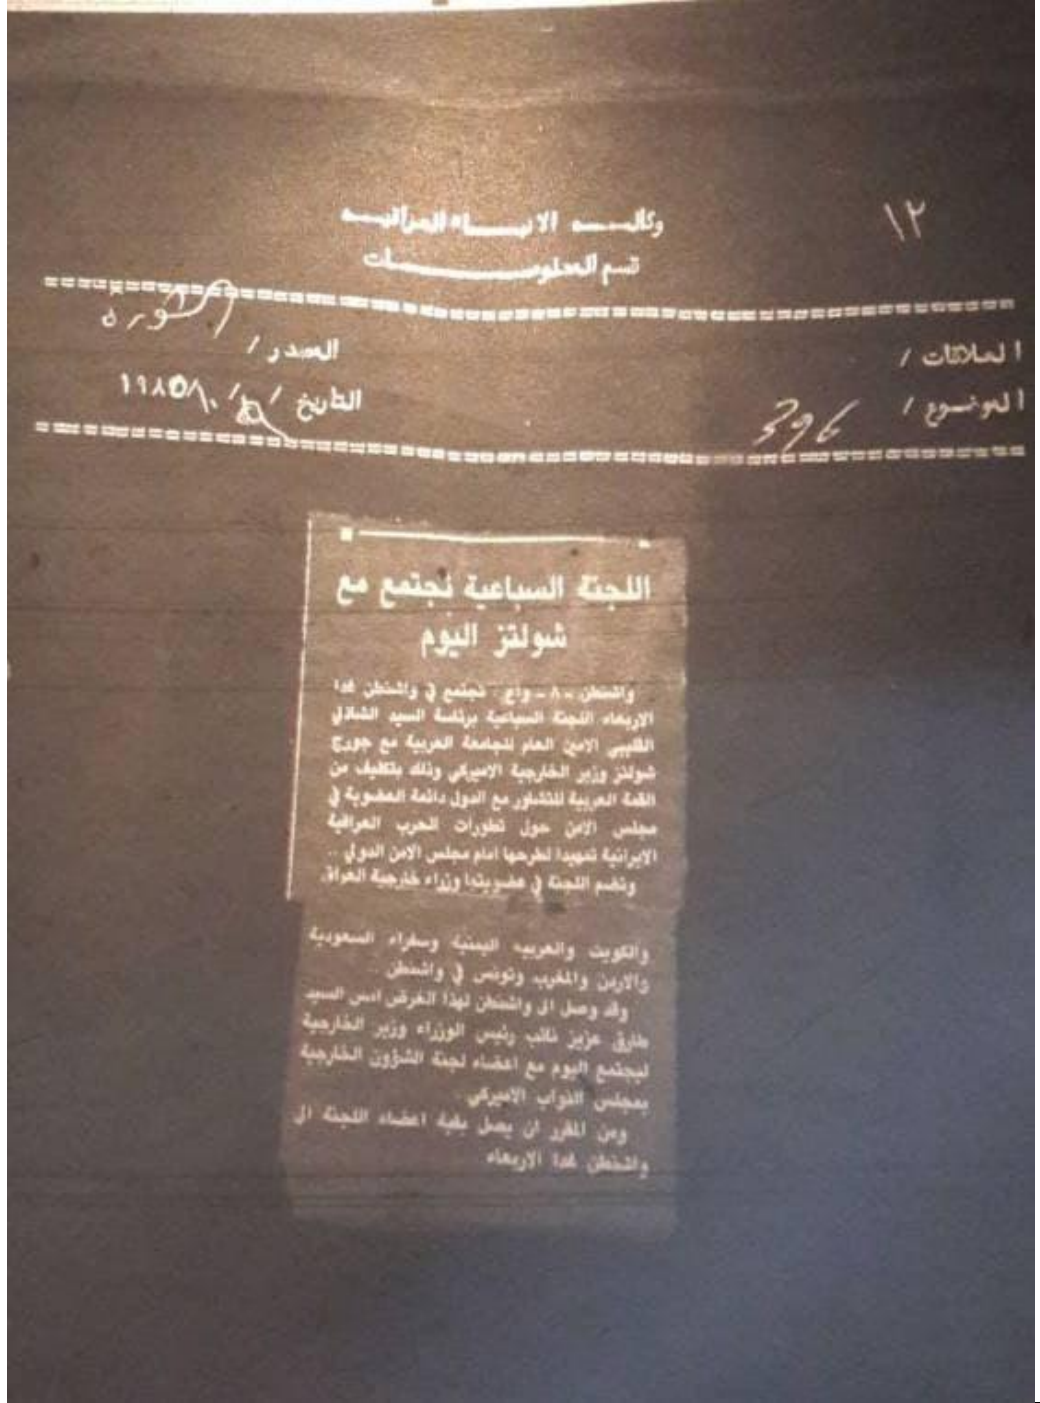 ١٢
وكالــة الانبــاء العراقيــة
قسم المعلومــات
العلاقات /
المصدر / الثورة
الموضوع / 396
التاريخ / / ١٩٨٥/١٠
اللجنة السباعية تجتمع مع
شولتز اليوم
واشنطن - ٨ - واع : تجتمع في واشنطن غدا
الاربعاء اللجنة السباعية برئاسة السيد الشاذلي
القليبي الامين العام للجامعة العربية مع جورج
شولتز وزير الخارجية الاميركي وذلك بتكليف من
القمة العربية للتشاور مع الدول دائمة العضوية في
مجلس الامن حول تطورات الحرب العراقية
الايرانية تمهيدا لطرحها امام مجلس الامن الدولي ..
وتضم اللجنة في عضويتها وزراء خارجية العراق
والكويت والعربية اليمنية وسفراء السعودية
والاردن والمغرب وتونس في واشنطن
وقد وصل الى واشنطن لهذا الغرض امس السيد
طارق عزيز نائب رئيس الوزراء وزير الخارجية
ليجتمع اليوم مع اعضاء لجنة الشؤون الخارجية
بمجلس النواب الاميركي .
ومن المقرر ان يصل بقية اعضاء اللجنة الى
واشنطن غدا الاربعاء